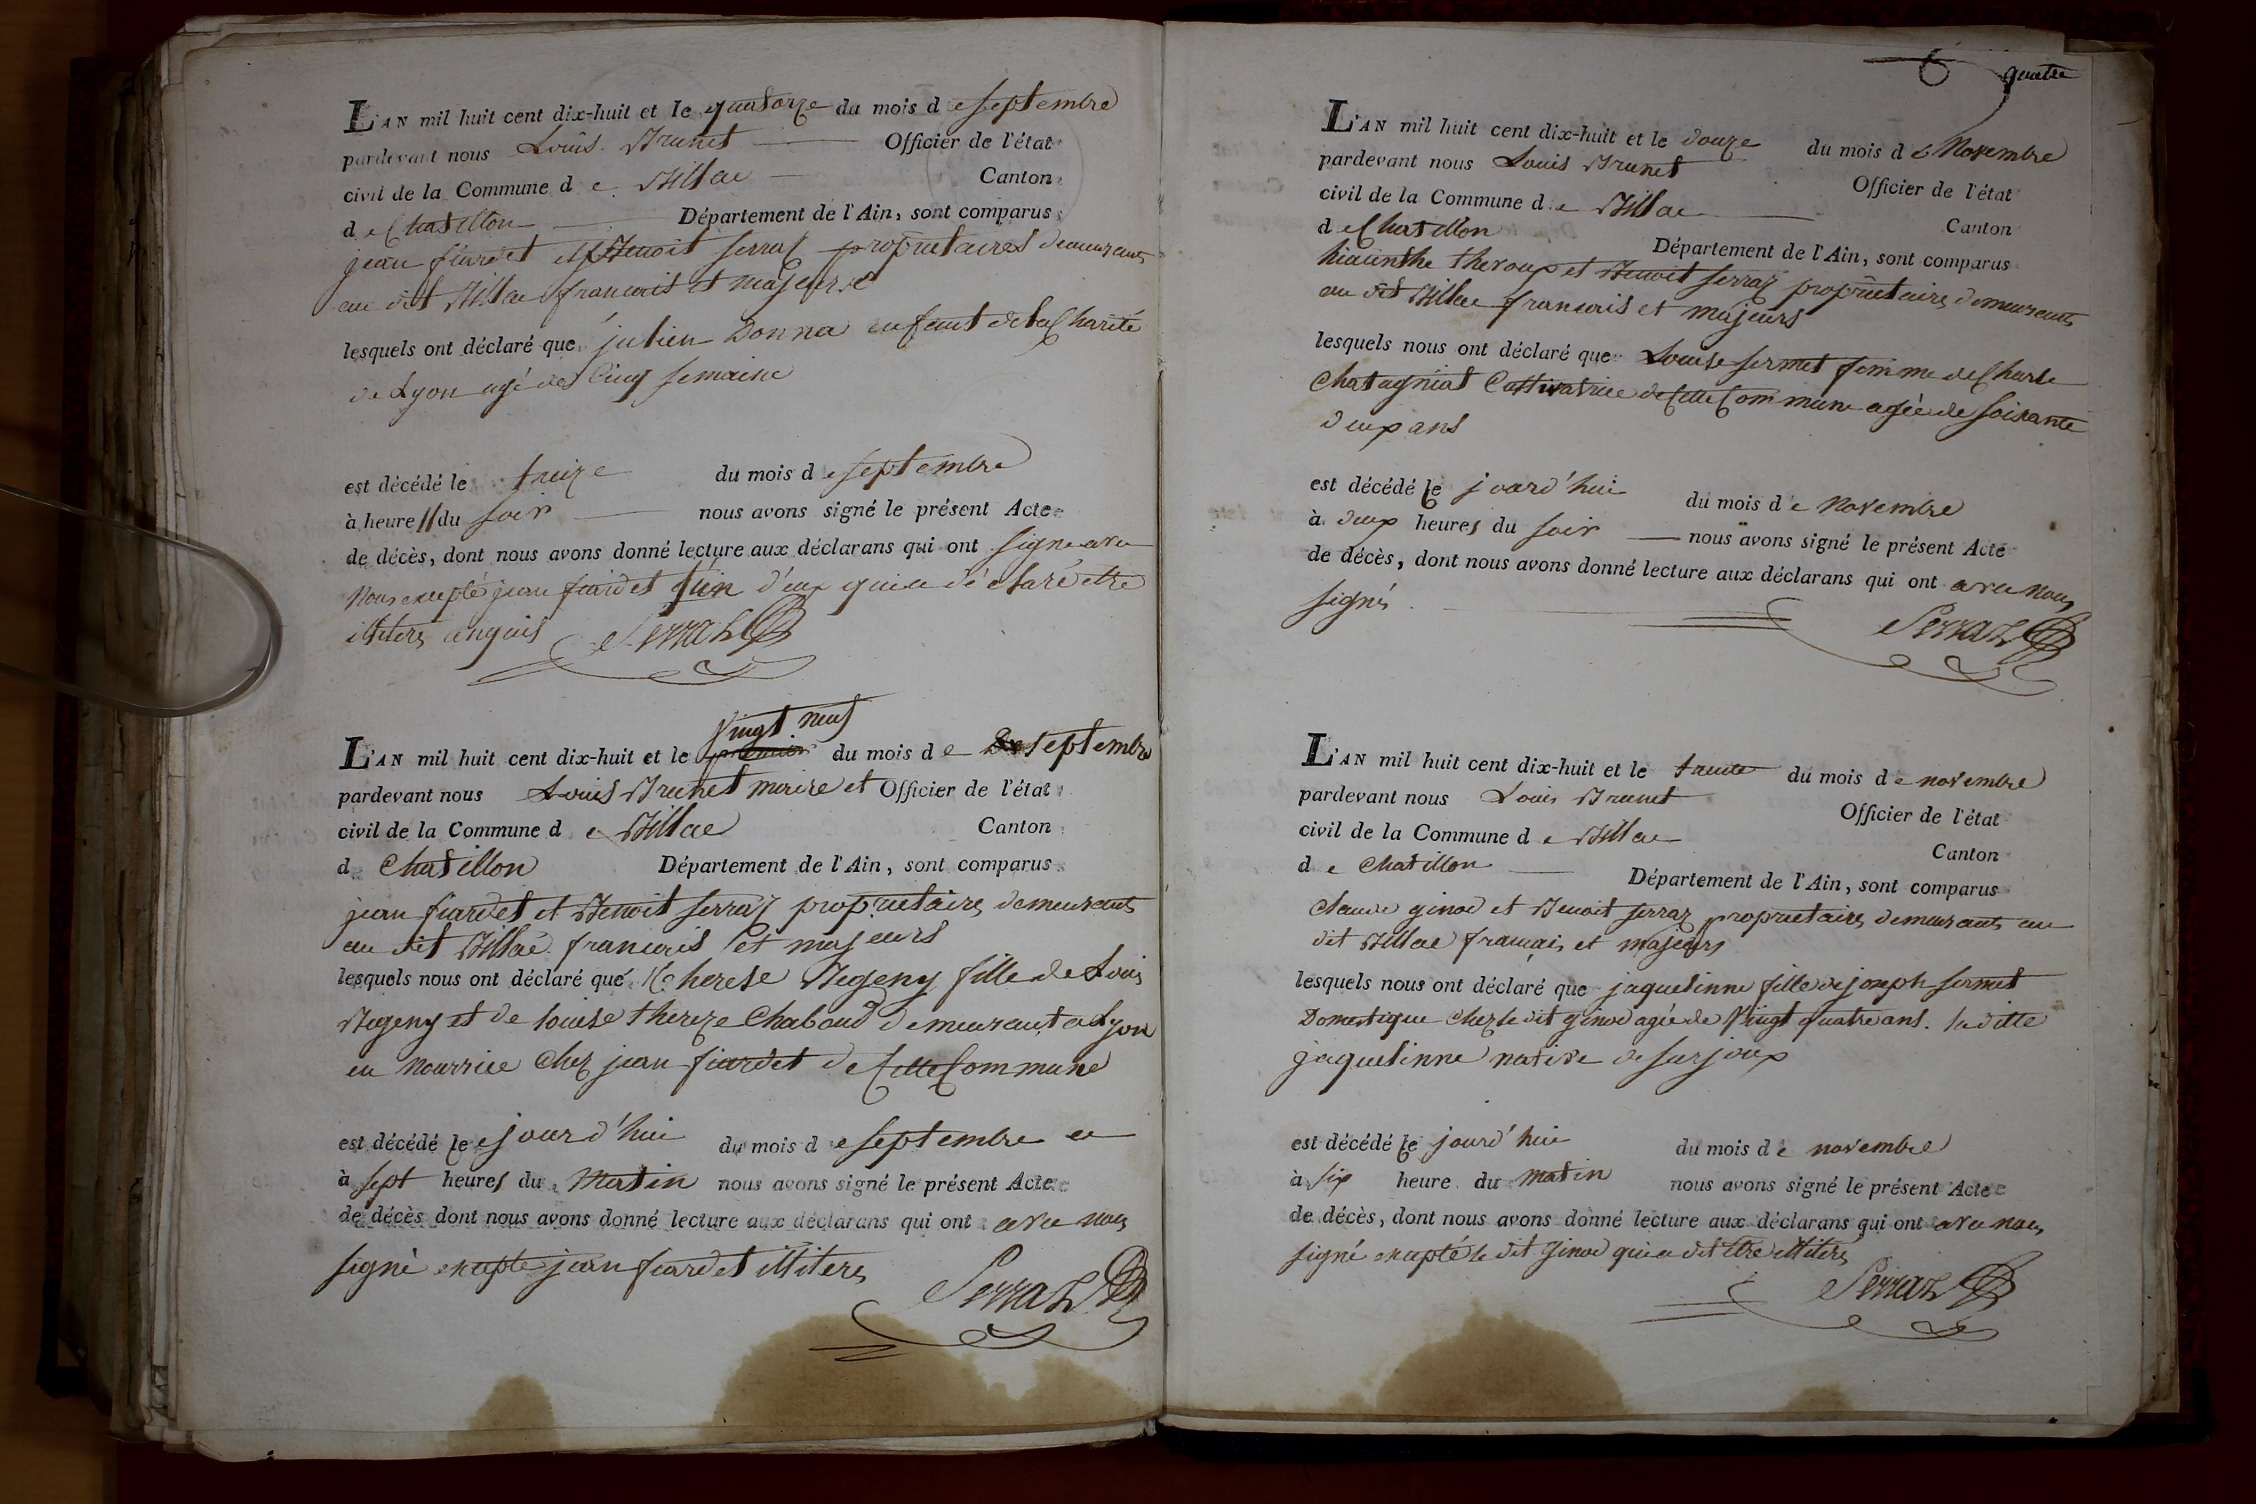 L'AN mil huit cent dix-huit et le quatorze du mois de septembre
pardevant nous Louis Brunet Officier de l'état
civil de la Commune de Billac Canton
de Chatillon Département de l'Ain, sont comparus
jean fiardet et Benoit serraz proprietaires demeurants
au dit Billac francais et majeurs
lesquels ont déclaré que julien Donna enfant de la Charité
de Lyon agé de Cinq semaine
est décédé le treize du mois de septembre
à heure // du soir nous avons signé le présent Acte
de décès, dont nous avons donné lecture aux déclarans qui ont signe avec
Nous excepté jean fiardet l'un d'eux qui a déclaré etre
illiteré requis Serraz
L'AN mil huit cent dix-huit et le vingt neuf du mois de septembre
pardevant nous Louis Brunet maire et Officier de l'état
civil de la Commune de Billac Canton
de Chatillon Département de l'Ain, sont comparus
jean fiardet et Benoit serraz proprietaires demeurants
au dit Billac francais et majeurs
lesquels nous ont déclaré que Therese Begeny fille de Louis
Begeny et de louise thereze Chaboud demeurant a Lyon
en Nourrice Chez jean fiardet de Cette Commune
est décédé le jourd'hui du mois de septembre
à sept heures du Matin nous avons signé le présent Acte
de décès dont nous avons donné lecture aux déclarans qui ont avec nous
signé excepté jean fiardet illiteré
Serraz
6 quatre
L'AN mil huit cent dix-huit et le douze du mois de Novembre
pardevant nous Louis Brunet Officier de l'état
civil de la Commune de Billac Canton
de Chatillon Département de l'Ain, sont comparus
hiacinthe theroux et Benoit serraz proprietaires demeurants
au dit Billac francais et majeurs
lesquels nous ont déclaré que Louise sermet femme de Charle
Chatagniat Cultivatrice de Cette Commune agée de soixante
deux ans
est décédé le jourd'hui du mois de Novembre
à deux heures du soir nous avons signé le présent Acte
de décès, dont nous avons donné lecture aux déclarans qui ont avec nous
signés
Serraz
L'AN mil huit cent dix-huit et le trente du mois de novembre
pardevant nous Louis Brunet Officier de l'état
civil de la Commune de Billac Canton
de Chatillon Département de l'Ain, sont comparus
claude ginod et Benoit serraz proprietaires demeurants au
dit Billac français et majeurs
lesquels nous ont déclaré que jaquelinne fille de joseph sermet
Domestique Chez le dit ginod agée de Vingt quatre ans. la ditte
jaquelinne native de surjoux
est décédé le jourd'hui du mois de novembre
à six heure du matin nous avons signé le présent Acte
de décès, dont nous avons donné lecture aux déclarans qui ont avec nous
signé excepté le dit Ginod qui a dit etre illiteré
Serraz